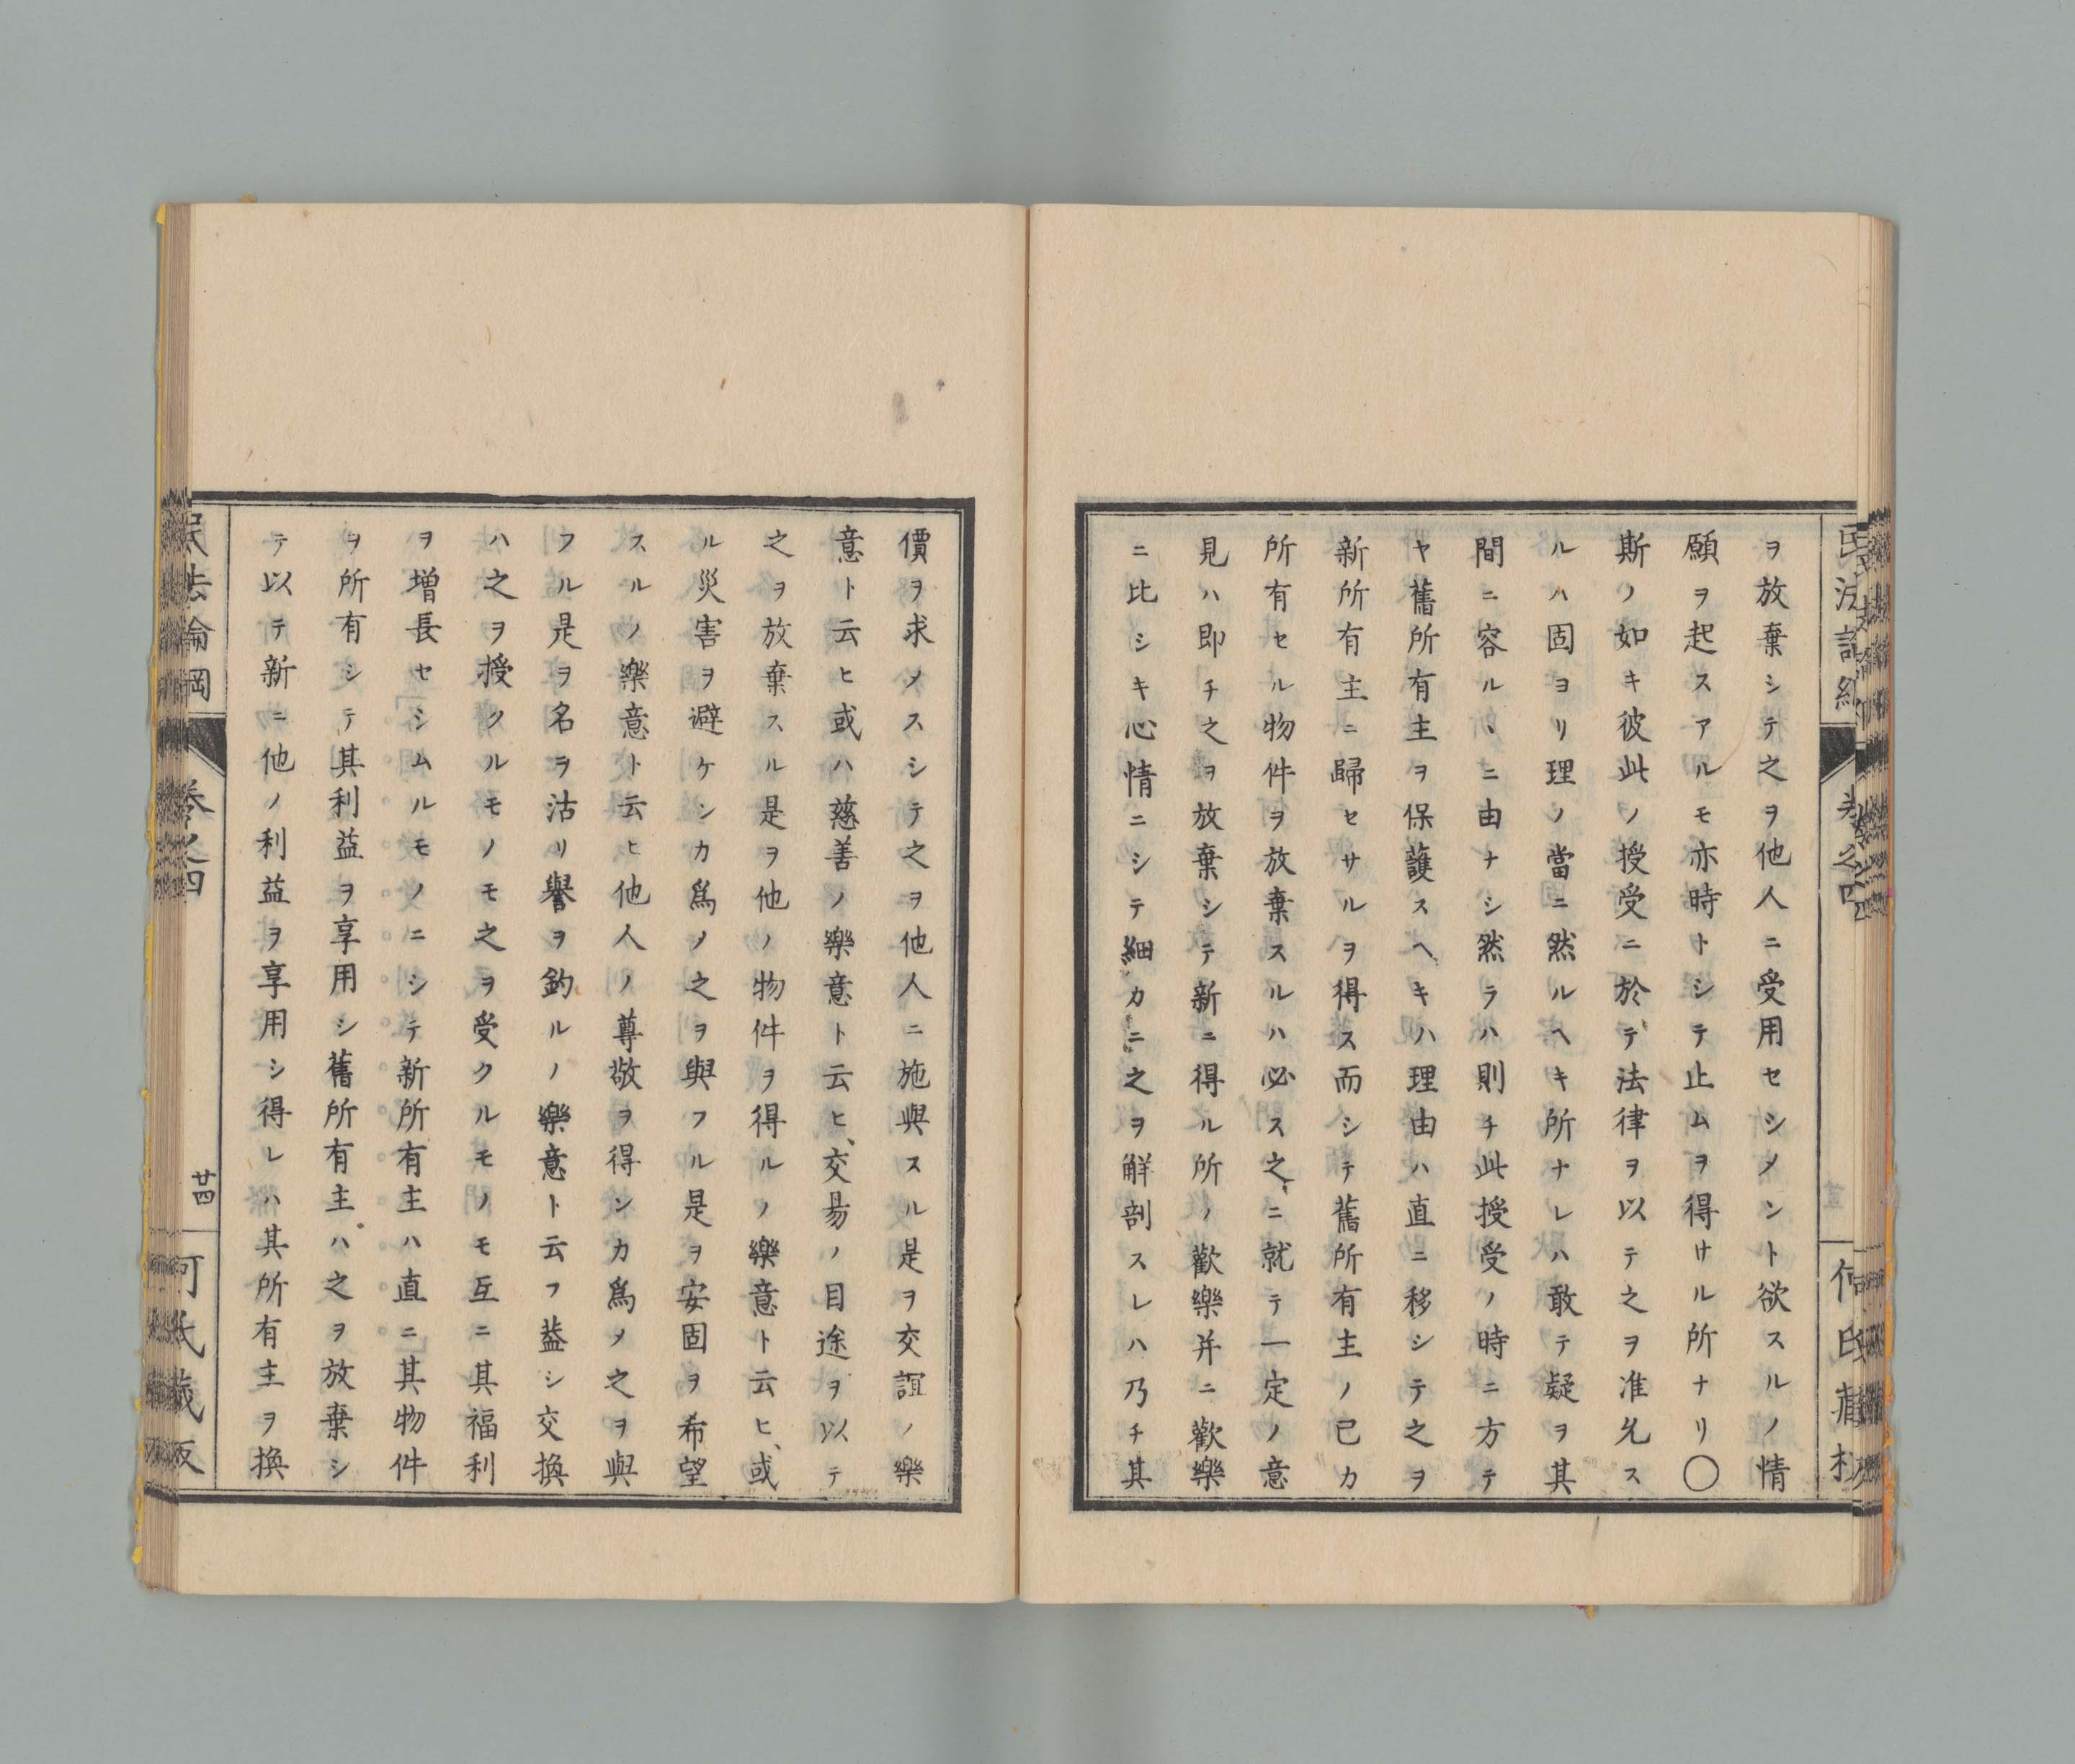 ヲ放棄シテ之ヲ他人ニ受用セシメント欲スルノ情
願ヲ起スアルモ亦時トシテ止ムヲ得サル所ナリ〇
斯ノ如キ彼此ノ授受ニ於テ法律ヲ以テ之ヲ准允ス
ルハ固ヨリ理ノ當ニ然ルヘキ所ナレハ敢テ疑ヲ其
間ニ容ルヽニ由ナシ然ラハ則チ此授受ノ時ニ方テ
ヤ舊所有主ヲ保護スヘキハ理由ハ直ニ移シテ之ヲ
新所有主ニ歸セサルヲ得ス而シテ舊所有主ノ已カ
所有セル物件ヲ放棄スルハ必ス之ニ就テ一定ノ意
見ハ即チ之ヲ放棄シテ新ニ得ル所ノ歡樂并ニ歡樂
ニ比シキ心情ニシテ細カニ之ヲ解剖スレハ乃チ其
價ヲ求メスシテ之ヲ他人ニ施與スル是ヲ交誼ノ樂
意ト云ヒ或ハ慈善ノ樂意ト云ヒ、交易ノ目途ヲ以テ
之ヲ放棄スル是ヲ他ノ物件ヲ得ルノ樂意ト云ヒ、或
ル災害ヲ避ケシカ爲ノ之ヲ與フル是ヲ安固ヲ希望
スルノ樂意ト云ヒ他人ノ尊敬ヲ得ンカ爲メ之ヲ與
フル是ヲ名ヲ沽リ譽ヲ釣ルノ樂意ト云フ葢シ交換
ハ之ヲ授クルモノモ之ヲ受クルモノモ互ニ其福利
ヲ增長セシムルモノニシテ新所有主ハ直ニ其物件
ヲ所有シテ其利益ヲ享用シ舊所有主ハ之ヲ放棄シ
テ以テ新ニ他ノ利益ヲ享用シ得レハ其所有主ヲ換
民法論綱
卷之四
廿四
何氏藏板